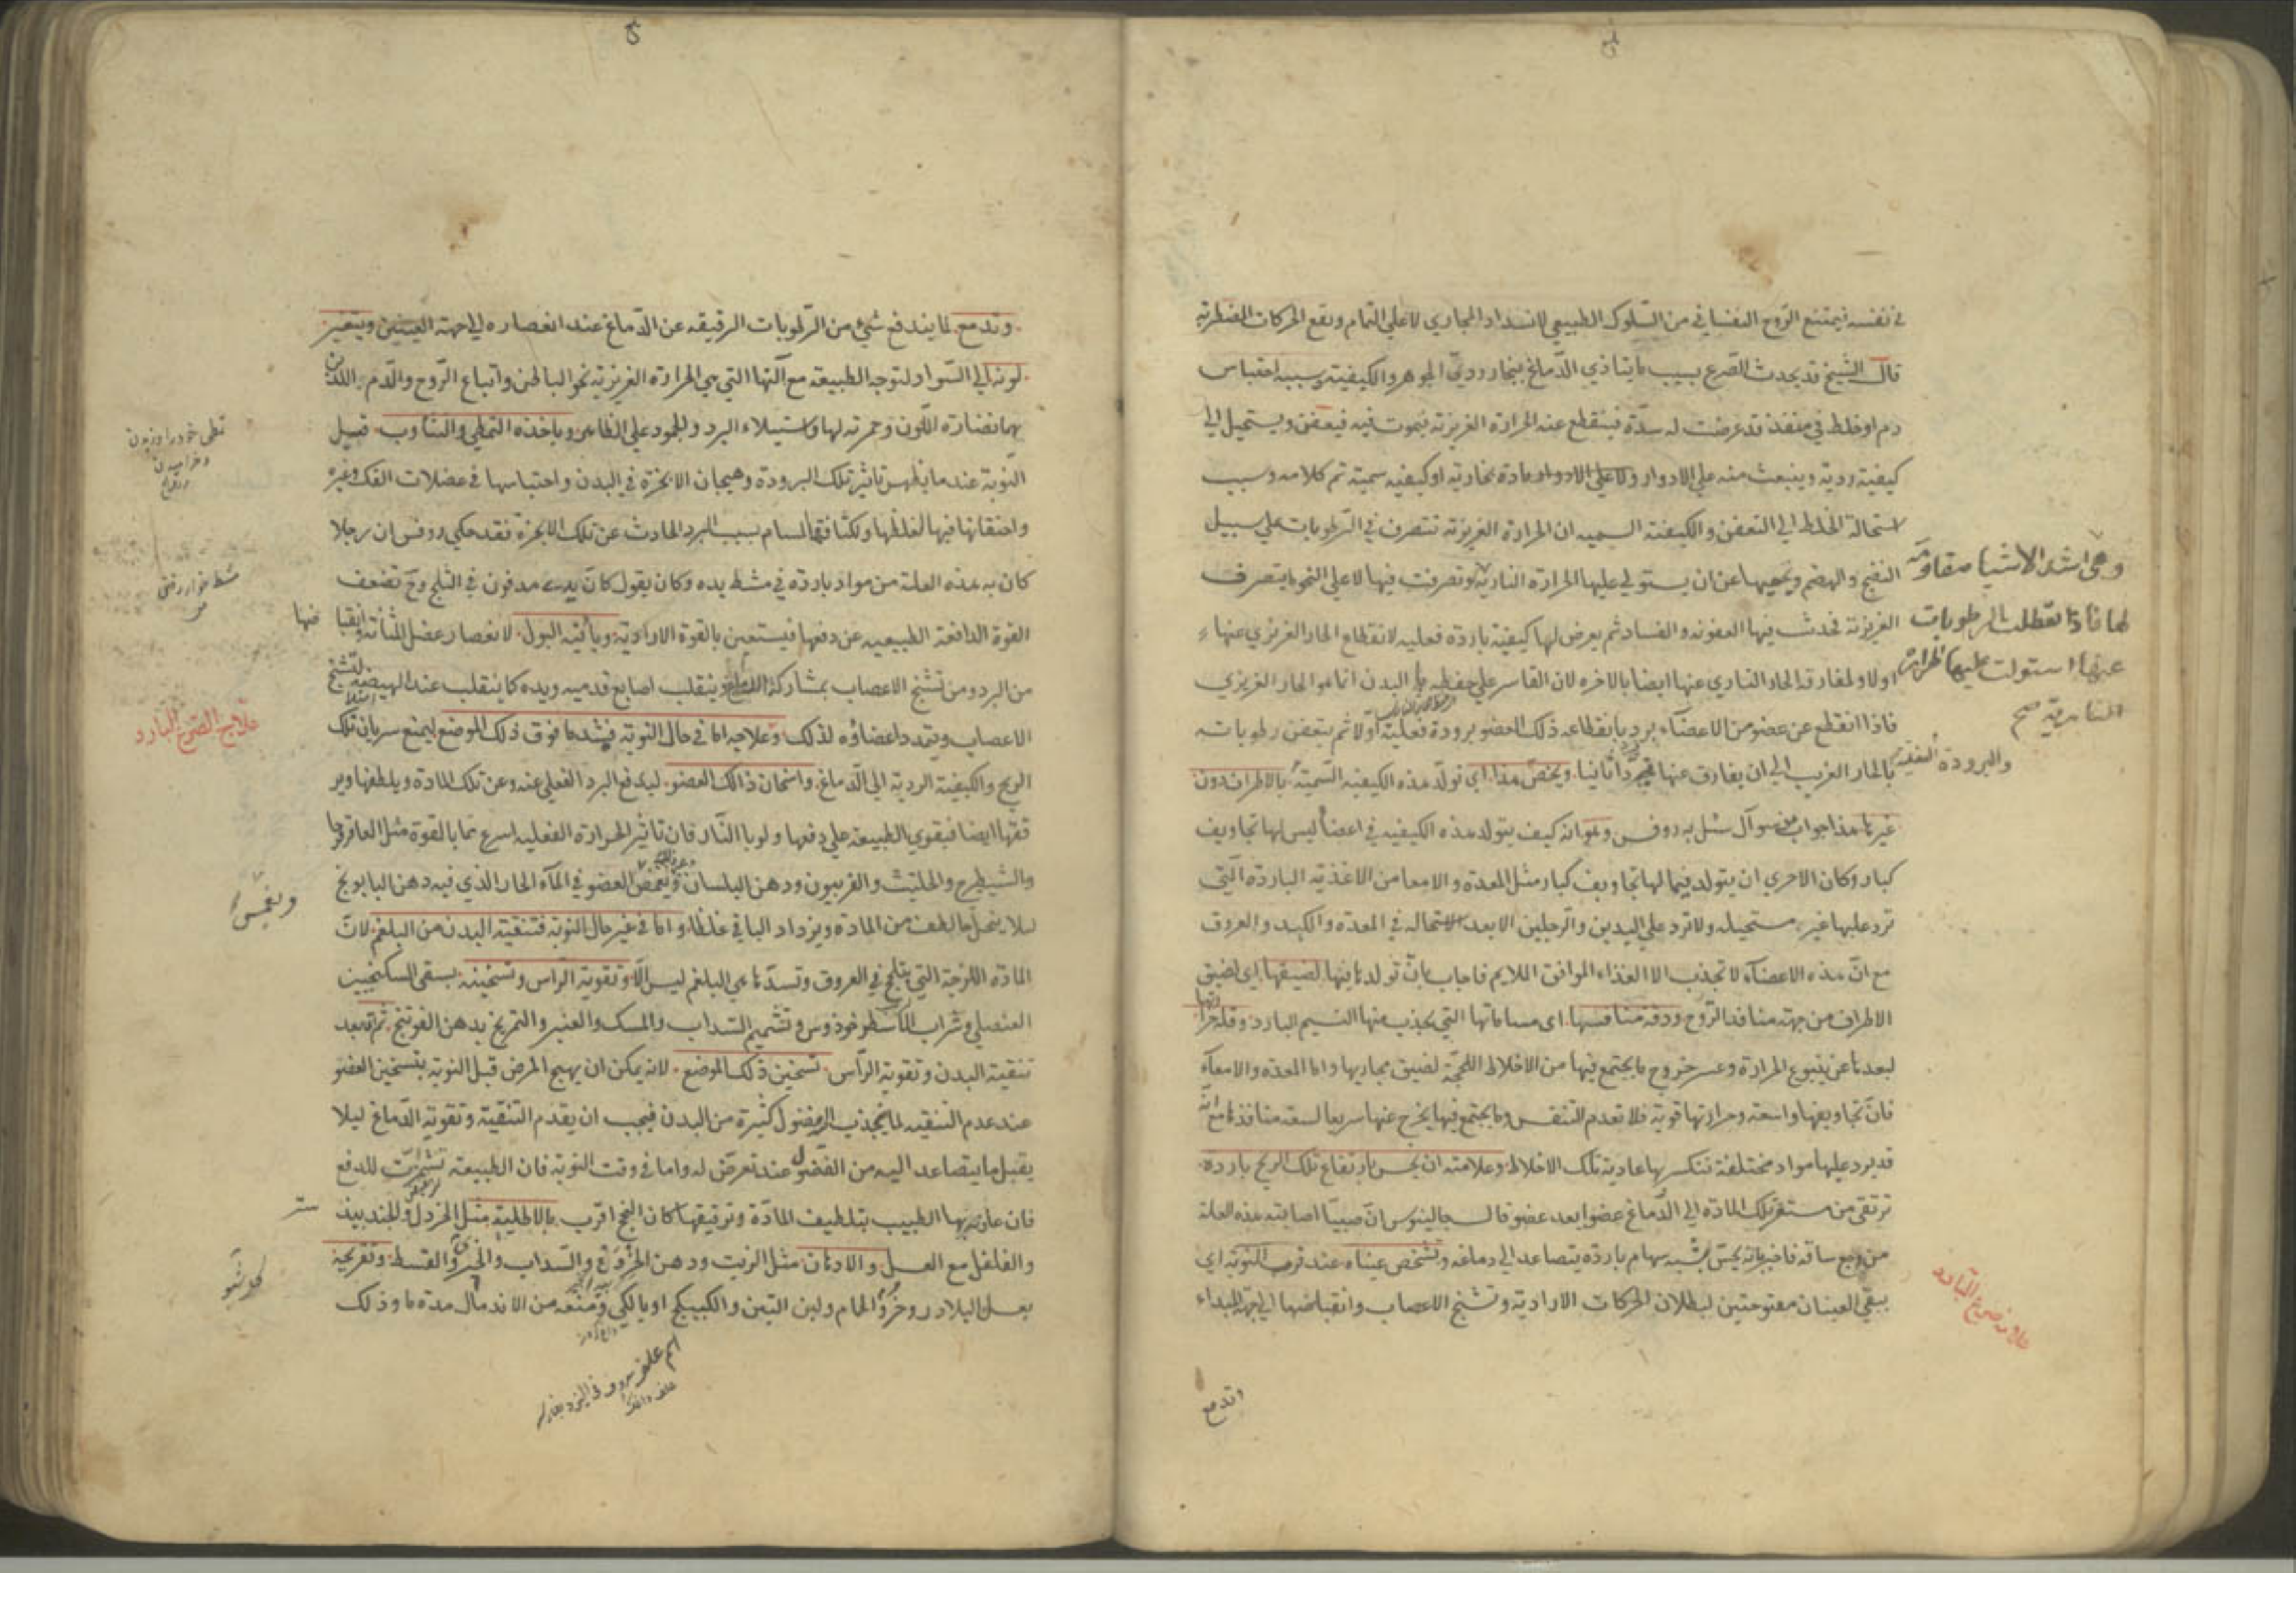 في نفسه فيمتنع الروح النفساني من السلوك الطبيعي لانسداد المجاري لا على التمام وتقع الحركات المضطربة
قال الشيخ قد يحدث الصرع بسبب ما يتاذي الدماغ ببخار رديّ الجوهر والكيفية وسببه احتباس
دم او خلط في منفذ قد عرضت له سدّة فينقطع عنه الحرارة الغريزية فيموت فيه فيعفن ويستحيل الي
كيفية ردية وينبعث منه علي الادوار ولا علي الادوار مادة بخارية او كيفيه سمية تم كلامه وسبب
استحالة الخلط الي التعفن والكيفية السميه ان الحرارة الغريزية تتصرف في الرطوبات علي سبيل
النضج والهضم وتحميها عن ان يستولي عليها الحرارة النارية وتصرفت فيها لا علي النحو ما يتصرف
وهي اشد الاشيا مقاومة
لها فاذا تعطلت الرطوبات
عنها استولت عليها الحرارة
النارية صح
الغريزية فحدث فيها العفونه والفساد ثم يعرض لها كيفية باردة فعلية لانقطاع الحار الغريزي عنها
اولا ولمفارقة الحار الناري عنها ايضا بالاخره لان القاسر علي حفظه في البدن انما هو الحار الغريزي
فاذا انقطع عن عضو من الاعضاء برد بانقطاعه ذلك العضو برودة فعلية اولا ثم يتعفن رطوباته
بالحار الغريب الي ان يفارق عنها فيبرد ثانيا ويخص هذا اي تولد هذه الكيفيه السمية بالاطراف دون
غيرها هذا جواب عن سوآل سئل به روفس وهو انه كيف يتولد هذه الكيفيه في اعضا ليس لها تجاويف
كبار وكان الاحري ان يتولد فيما لها تجاويف كبار مثل المعدة والامعا من الاغذية الباردة التي
ترد عليها غير مستحيله ولا ترد علي اليدين والرجلين الا بعد الاستحاله في المعدة والكبد والعروق
مع انّ هذه الاعضاء لا تجذب الا الغذاء الموافق الملايم فاجاب بانّ تولدها فيها لضيقها اي لضيق
الاطراف من جهة منافذ الروح ودقة منافسها اي مساماتها التي يجذب منها النسيم البارد وقلة حرارتها
لبعدها عن ينبوع الحرارة وعسر خروج ما يجتمع فيها من الاخلاط اللحجة لضيق مجاريها واما المعدة والامعاء
فانّ تجاويفها واسعة وحرارتها قوية فلا تعدم التنفس وما يجتمع فيها يخرج عنها سريعا لسعة منافذها مع انه
قد يرد عليها مواد مختلفة تنكسر بها عادية تلك الاخلاط وعلامته ان يحس بارتفاع تلك الريح باردة
ترتقي من مستقر تلك المادة الي الدماغ عضوا بعد عضو قال جالينوس انّ صبيّا اصابته هذه العلة
من وجع ساقه فاخبر بانه يحسّ بشبه سهام باردة يتصاعد الي دماغه وتشخص عيناه عند قرب النوبة اي
يبقي العينان مفتوحتين لبطلان الحركات الارادية وتشنج الاعصاب وانقباضها الي جهة المبداء
وتدمع
وتدمع لما يندفع شيئ من الرطوبات الرقيقه عن الدماغ عند انعصاره الي جهة العينين ويتغير
لونه الي السواد لتوجه الطبيعة مع آلتها التي هي الحرارة الغريزية نحو الباطن واتباع الروح والدم اللذين
بهما نضارة اللون وحمرته لها واستيلاء البرد والجمود علي الظاهر وياخذه التمطي والتثاوب قبيل
النوبة عند ما يظهر تاثير تلك البرودة وهيجان الابخرة في البدن واحتباسها في عضلات الفك وغيره
واحتقانها فيها لغلظها ولكثافة المسام بسبب البرد الحادث عن تلك الابخرة فقد حكي روفس ان رجلا
كان به هذه العلة من مواد باردة في مشط يده وكان يقول كانّ يدي مدفون في الثلج وح تضعف
القوة الدافعة الطبيعيه عن دفعها فيستعين بالقوة الارادية وياتيه البول لانعصار عضل المثانة وانقباضها
من البرد ومن تشنج الاعصاب بمشاركة الدماغ وينقلب اصابع قدميه ويده كما ينقلب عند الهيضه لتشنج
الاعصاب ويتمدد اعضاؤه لذلك وعلاجه اما في حال النوبة فيشد ما فوق ذلك الموضع ليمنع سريان تلك
علاج الصرع البارد
الريح والكيفية الردية الي الدماغ واسخان ذلك العضو ليدفع البرد الفعلي عنه وعن تلك المادة ويلطفها وير
ققها ايضا فيقوي الطبيعة علي دفعها ولو بالنار فان تاثير الحرارة الفعليه اسرع مما بالقوة مثل العاقرقرحا
والشيطرج والحلتيت والفربيون ودهن البلسان ويغمض العضو في الماء الحار الذي فيه دهن البابونج
ليلا ينحل ما لطف من المادة ويزداد الباقي غلظا واما في غير حال النوبة فتنقية البدن من البلغم لانّ
المادة اللزجة التي يتلحج في العروق وتسدّها هي البلغم ليس الّا وتقوية الراس وتسخينه بسقي السكنجبين
العنصلي وشراب الاسطوخوذوس وتشميم السداب والمسك والعنبر والتمريخ بدهن الفوتنج ثم بعد
تنقية البدن وتقوية الراس تسخين ذلك الموضع لانه يمكن ان يهيج المرض قبل النوبة بتسخين العضو
عند عدم التنقيه لما ينجذب اليه فضول كثيرة من البدن فيجب ان يقدم التنقية وتقوية الدماغ ليلا
يقبل ما يتصاعد اليه من الفضول عند تعرض له واما في وقت النوبة فان الطبيعة تشمرت للدفع
فان عاونها الطبيب بتلطيف المادة وترقيقها كان النجح اقرب بالاطلية مثل الخردل والجندبيد
ستر
والفلفل مع العسل والادهان مثل الزيت ودهن الخروع والسداب والخيري والقسط وتقريحه
بعسل البلادر وخرؤ الحمام ولبن التين والكبيكج او بالكي ومنعه من الاندمال مدة ما وذلك